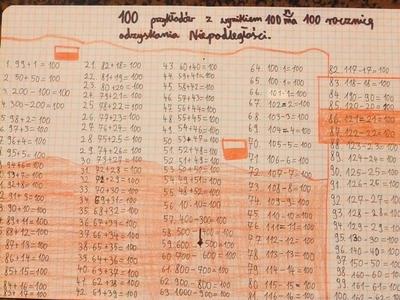 100 przykładów z wynikiem 100 na 100 rocznicę
odzyskania Niepodległości.
1. 99+1=100
2. 50+50=100
3. 200-100=100
4. 300-200=100
5. 98+2=100
6. 97+3=100
7. 96+4=100
8. 95+5=100
21. 82+18=100
22. 81+19=100
23. 80+20=100
24. 79+21=100
25. 78+22=100
26. 77+23=100
27. 76+24=100
28. 75+25=100
29. 74+26=100
30. 73+27=100
31. 72+28=100
33. 70+30=100
34. 69+31=100
35. 68+32=100
36. 67+33=100
37. 66+34=100
38. 65+35=100
39. 64+36=100
40. 63+37=100
41. 62+38=100
42. 61+39=100
43. 60+40=100
44. 59+41=100
45. 58+42=100
46. 57+43=100
47. 56+44=100
48. 55+45=100
49. 54+46=100
50. 53+47=100
51. 52+48=100
52. 51+49=100
53. 50+50=100
56. 10·10=100
57. 400-300=100
58. 500-400=100
59. 600-500=100
60. 700-600=100
61. 800-700=100
62. 900-800=100
63. 1000-900=100
64. 100·1=100
65. 100:1=100
66. 101-1=100
67. 102-2=100
68. 103-3=100
69. 104-4=100
70. 105-5=100
71. 106-6=100
72. 107-7=100
73. 108-8=100
74. 109-9=100
75. 110-10=100
76. 111-11=100
77. 112-12=100
78. 113-13=100
79. 114-14=100
80. 115-15=100
81. 116-16=100
82. 117-17=100
83. 118-18=100
84. 190-90=100
85. 120-20=100
86. 121-21=100
87. 122-22=100
88. 123-23=100
89. 124-24=100
90. 125-25=100
91. 126-26=100
92. 127-27=100
93. 128-28=100
94. 129-29=100
95. 130-30=100
96. 140-40=100
97. 150-50=100
98. 160-60=100
99. 161-61=100